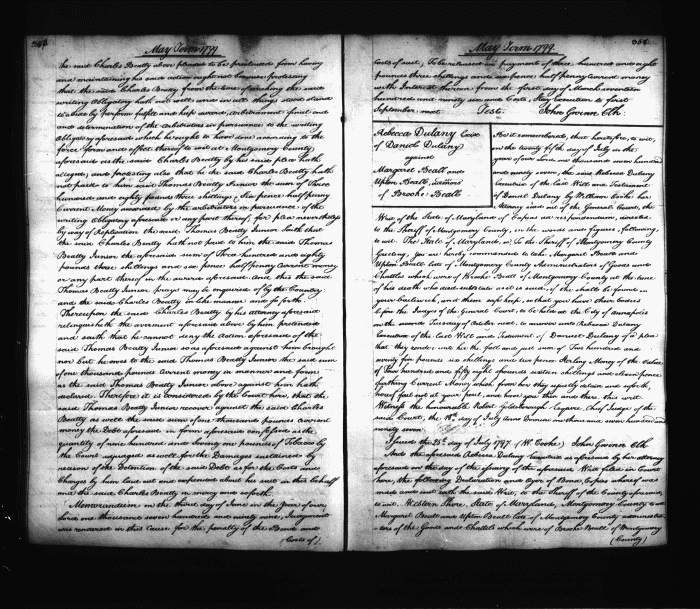 May Term 1799
the said Charles Beatty above pleaded to be precluded from having
and maintaining his said action ought not because protesting
that the said Charles Beatty from the time of making the said
writing Obligatory hath not well and in all things stood stand
to abide by perform fulfill and keep award, arbitrament final end
and determination of the arbitrators in pursuance to the writing
Obligatory aforesaid which he ought to have done according to the
force form and effect thereof to wit at Montgomery County
aforesaid as the said Charles Beatty by his said plea hath
alleged, and protesting also that he the said Charles Beatty hath
not paid to him said Thomas Beatty Junior the sum of Three
hundred and eighty pounds three shillings & six pence half penny
Current Money awarded by the arbitrators in pursuance of the
writing Obligatory aforesaid or any part thereof, for plea nevertheless
by way of Replication the said Thomas Beatty Junior Saith that
the said Charles Beatty hath not paid to him the said Thomas
Beatty Junior the aforesaid sum of Three hundred and eighty
pounds three shillings and six pence half penny Current money
or any part thereof in the manner aforesaid And this the said
Thomas Beatty Junior prays may be enquired of by the Country
and the said Charles Beatty in like manner and so forth.
Thereupon the said Charles Beatty by his attorney aforesaid
relinquisheth the averment aforesaid above by him pretended
and saith that he cannot deny the Action aforesaid of the
said Thomas Beatty Junior so as aforesaid against him brought
nor but he owes to the said Thomas Beatty Junior the said sum
of one thousand pounds Current money in manner and form
as the said Thomas Beatty Junior above against him hath
declared. Therefore it is considered by the Court here, that the
said Thomas Beatty Junior recover against the said Charles
Beatty as well the said sum of one thousand pounds current
money the Debt aforesaid in form aforesaid confessed as the
quantity of nine hundred and seventy one pounds of Tobacco by
the Court adjudged as well for the Damages sustained by
reason of the Detention of the said Debt as for the Costs and
Charges by him laid out and expended about his suit in this behalf
and the said Charles Beatty in mercy and soforth.
Memorandum on the third day of June in the Year of our
Lord one thousand seven hundred and ninety nine, Judgment
was rendered in this Cause for the penalty of the Bond and
(Costs of)
May Term 1799.
Costs of suit, To be released on payment of three hundred and eighty
pounds three shillings and six pence half penny Current money
with Interest thereon from the first day of March seventeen
hundred and ninety six and Costs, Stay Execution to first
September next Test. John Gwinn Clk.
Rebecca Dulany Exx
of Daniel Dulany
against
Margaret Beall and
Upton Beall, admors
of Brooke Beall
Be it remembered, that heretofore, to wit,
on the twenty fifth day of July in the
Year of our Lord one thousand seven hundred
and ninety seven, the said Rebecca Dulany
Executrix of the Last Will and Testament
of Daniel Dulany by William Cooke her
Attorney sued out of the General Court, the
Writ of the State of Maryland of Capias ad respondendum, directed
to the Sheriff of Montgomery County, in the words and figures following,
to wit. The State of Maryland, ss: To the Sheriff of Montgomery County
Greeting, You are hereby commanded to take Margaret Beall and
Upton Beall late of Montgomery County Administrators of Goods and
Chattles which were of Brooke Beall of Montgomery County at the time
of his death who died intestate as it is said, if they shall be found in
your bailiwick, and them safe keep, so that you have their bodies
before the Judges of the General Court, to be held at the City of Annapolis
on the second Tuesday of October next, to answer unto Rebecca Dulany
Executrix of the Last Will and Testament of Daniel Dulany of a plea
that they render unto her the full and just sum of Two hundred and
seventy four pounds six shillings and two pence Sterling Money of the Value
of Two hundred and fifty eight pounds sixteen shillings and eleven pence
farthing Current Money which from her they unjustly detain and soforth,
hereof fail not at your peril, and have you then and there this writ
Witness the honourable Robert Goldsborough Esquire, Chief Judge of the
said Court, the day of July Anno Domini one thousand seven hundred and
ninety seven
Issued the 25th day of July 1797. (Wm Cooke) John Gwinn Clk
And the aforesaid Rebecca Dulany Executrix as aforesaid by her attorney
aforesaid on the day of the issuing of the aforesaid Writ filed in Court
here, the following Declaration and Oyer of Bond, Copies whereof were
made and sent with the said Writ, to the Sheriff of the County aforesaid,
to wit. Western Shore, State of Maryland, Montgomery County ss
Margaret Beall and Upton Beall late of Montgomery County administra-
tors of the Goods and Chattels which were of Brooke Beall of Montgomery
(County)